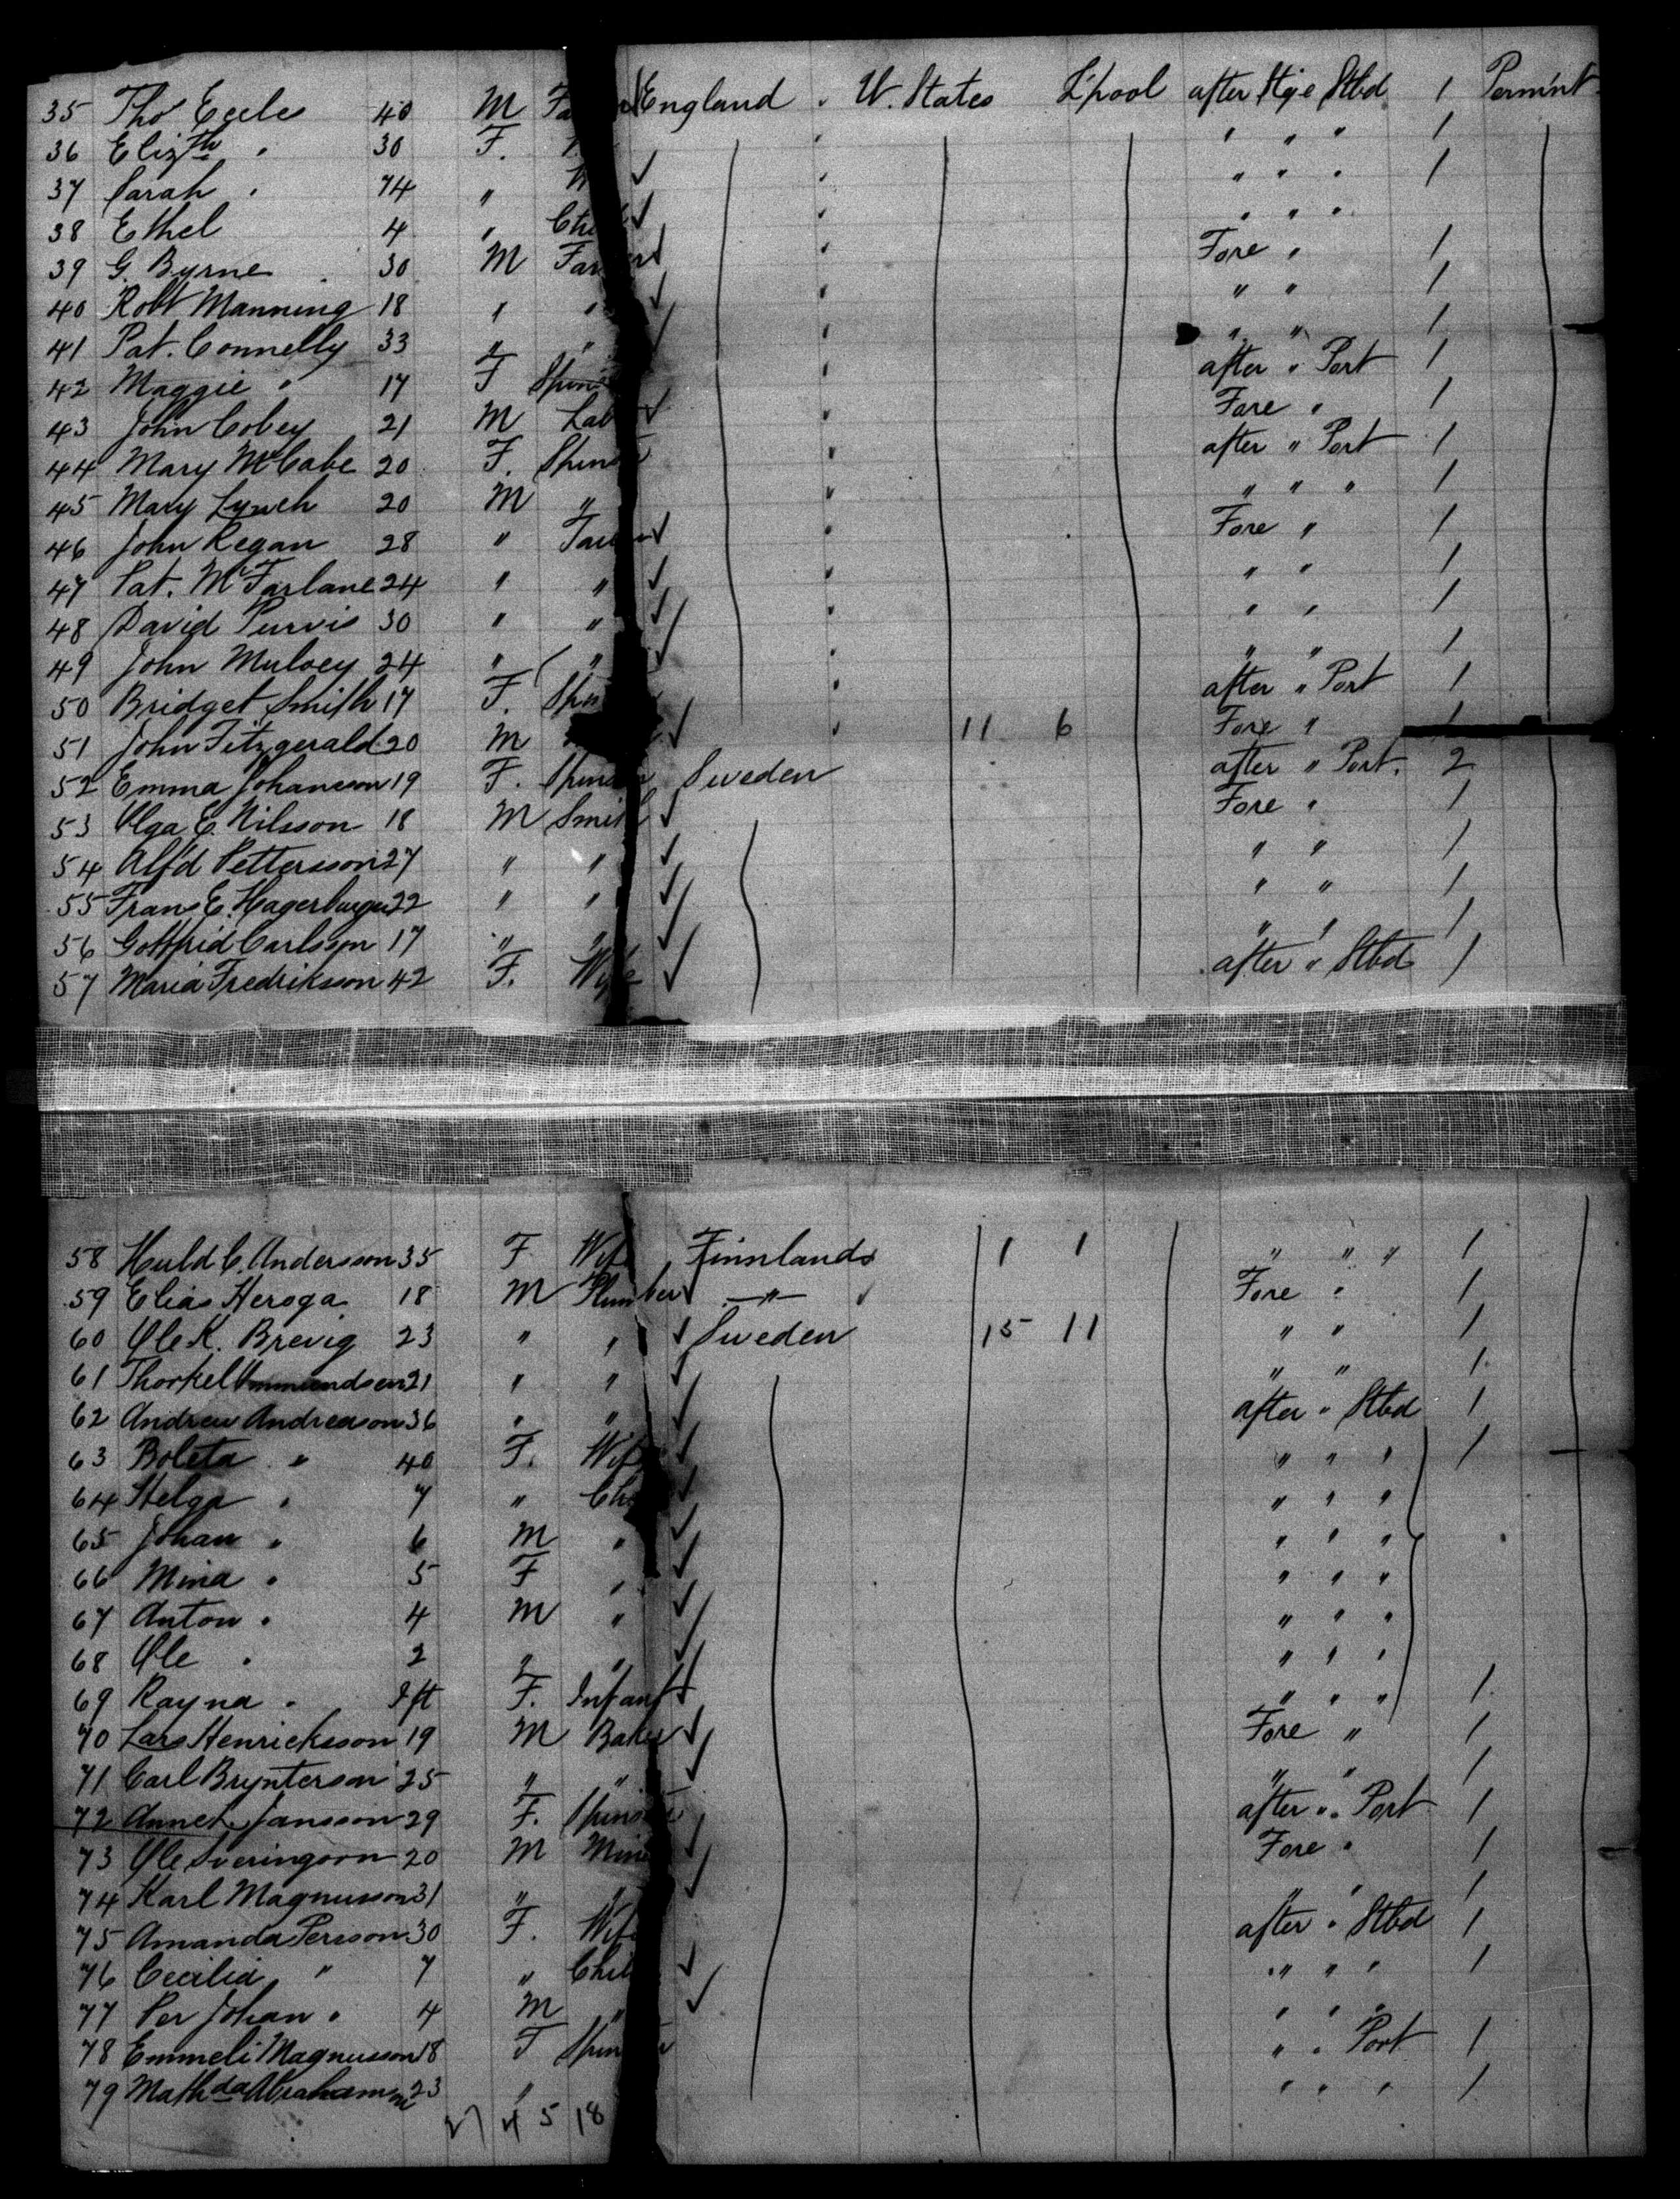 35 Tho Eccles 40 M England " U. States L'pool after Stge Stbd 1 Perm'nt
36 Eliz th " 30 F. " " " " 1
37 Sarah " 74 " " " " " 1
38 Ethel 4 " " " " "
39 G. Byrne 30 M Farmer " Fore " 1
40 Robt Manning 18 " " " " " 1
41 Pat. Connelly 33 " " " " " 1
42 Maggie " 17 F " after " Port 1
43 John Cobey 21 M Lab " Fore " 1
44 Mary McCabe 20 F. " after " Port 1
45 Mary Lynch 20 M " " " " " 1
46 John Regan 28 " " Fore " 1
47 Pat. McFarlane 24 " " " " " 1
48 David Purvis 30 " " " " " 1
49 John Mulvey 24 " " " " " 1
50 Bridget Smith 17 F. " after " Port 1
51 John Fitzgerald 20 M " 11 6 Fore " 1
52 Emma Johanson 19 F. Sweden after " Port. 2
53 Olga E. Nilsson 18 M Smith Fore " 1
54 Alf'd Pettersson 27 " " " " 1
55 Frans E. 22 " " " " 1
56 Gottfrid Carlsson 17 " " " " 1
57 Maria Fredriksson 42 F. Wife after " Stbd 1
58 Huld C. Andersson 35 F Wife Finnland 1 1 " " " 1
59 Elias Heroga 18 M Plumber " Fore " 1
60 Ole K. Brevig 23 " " Sweden 15 11 " " 1
61 Thorkel 21 " " " " 1
62 Andrew Andreason 36 " " after " Stbd 1
63 Boleta " 40 F. Wife " " " 1
64 Helga " 7 " Ch " " "
65 Johan " 6 M " " " "
66 Mina " 5 F " " " "
67 Anton " 4 M " " " "
68 Ole " 2 " " " " "
69 Rayna " Ift F. Infant " " " 1
70 Lars Henricksson 19 M Baker Fore " 1
71 Carl Brynterson 25 " " " " 1
72 Jansson 29 F. Spinster after " Port 1
73 Ole 20 M Mine Fore " 1
74 Karl Magnusson 31 " " " " 1
75 Amanda Persson 30 F. Wife after " Stbd 1
76 Cecilia " 7 " Chil " " " 1
77 Per Johan " 4 M " " " "
78 Emmeli Magnusson 18 F Spin " " Port 1
79 Math da 23 " " " " 1
27 4 5 18